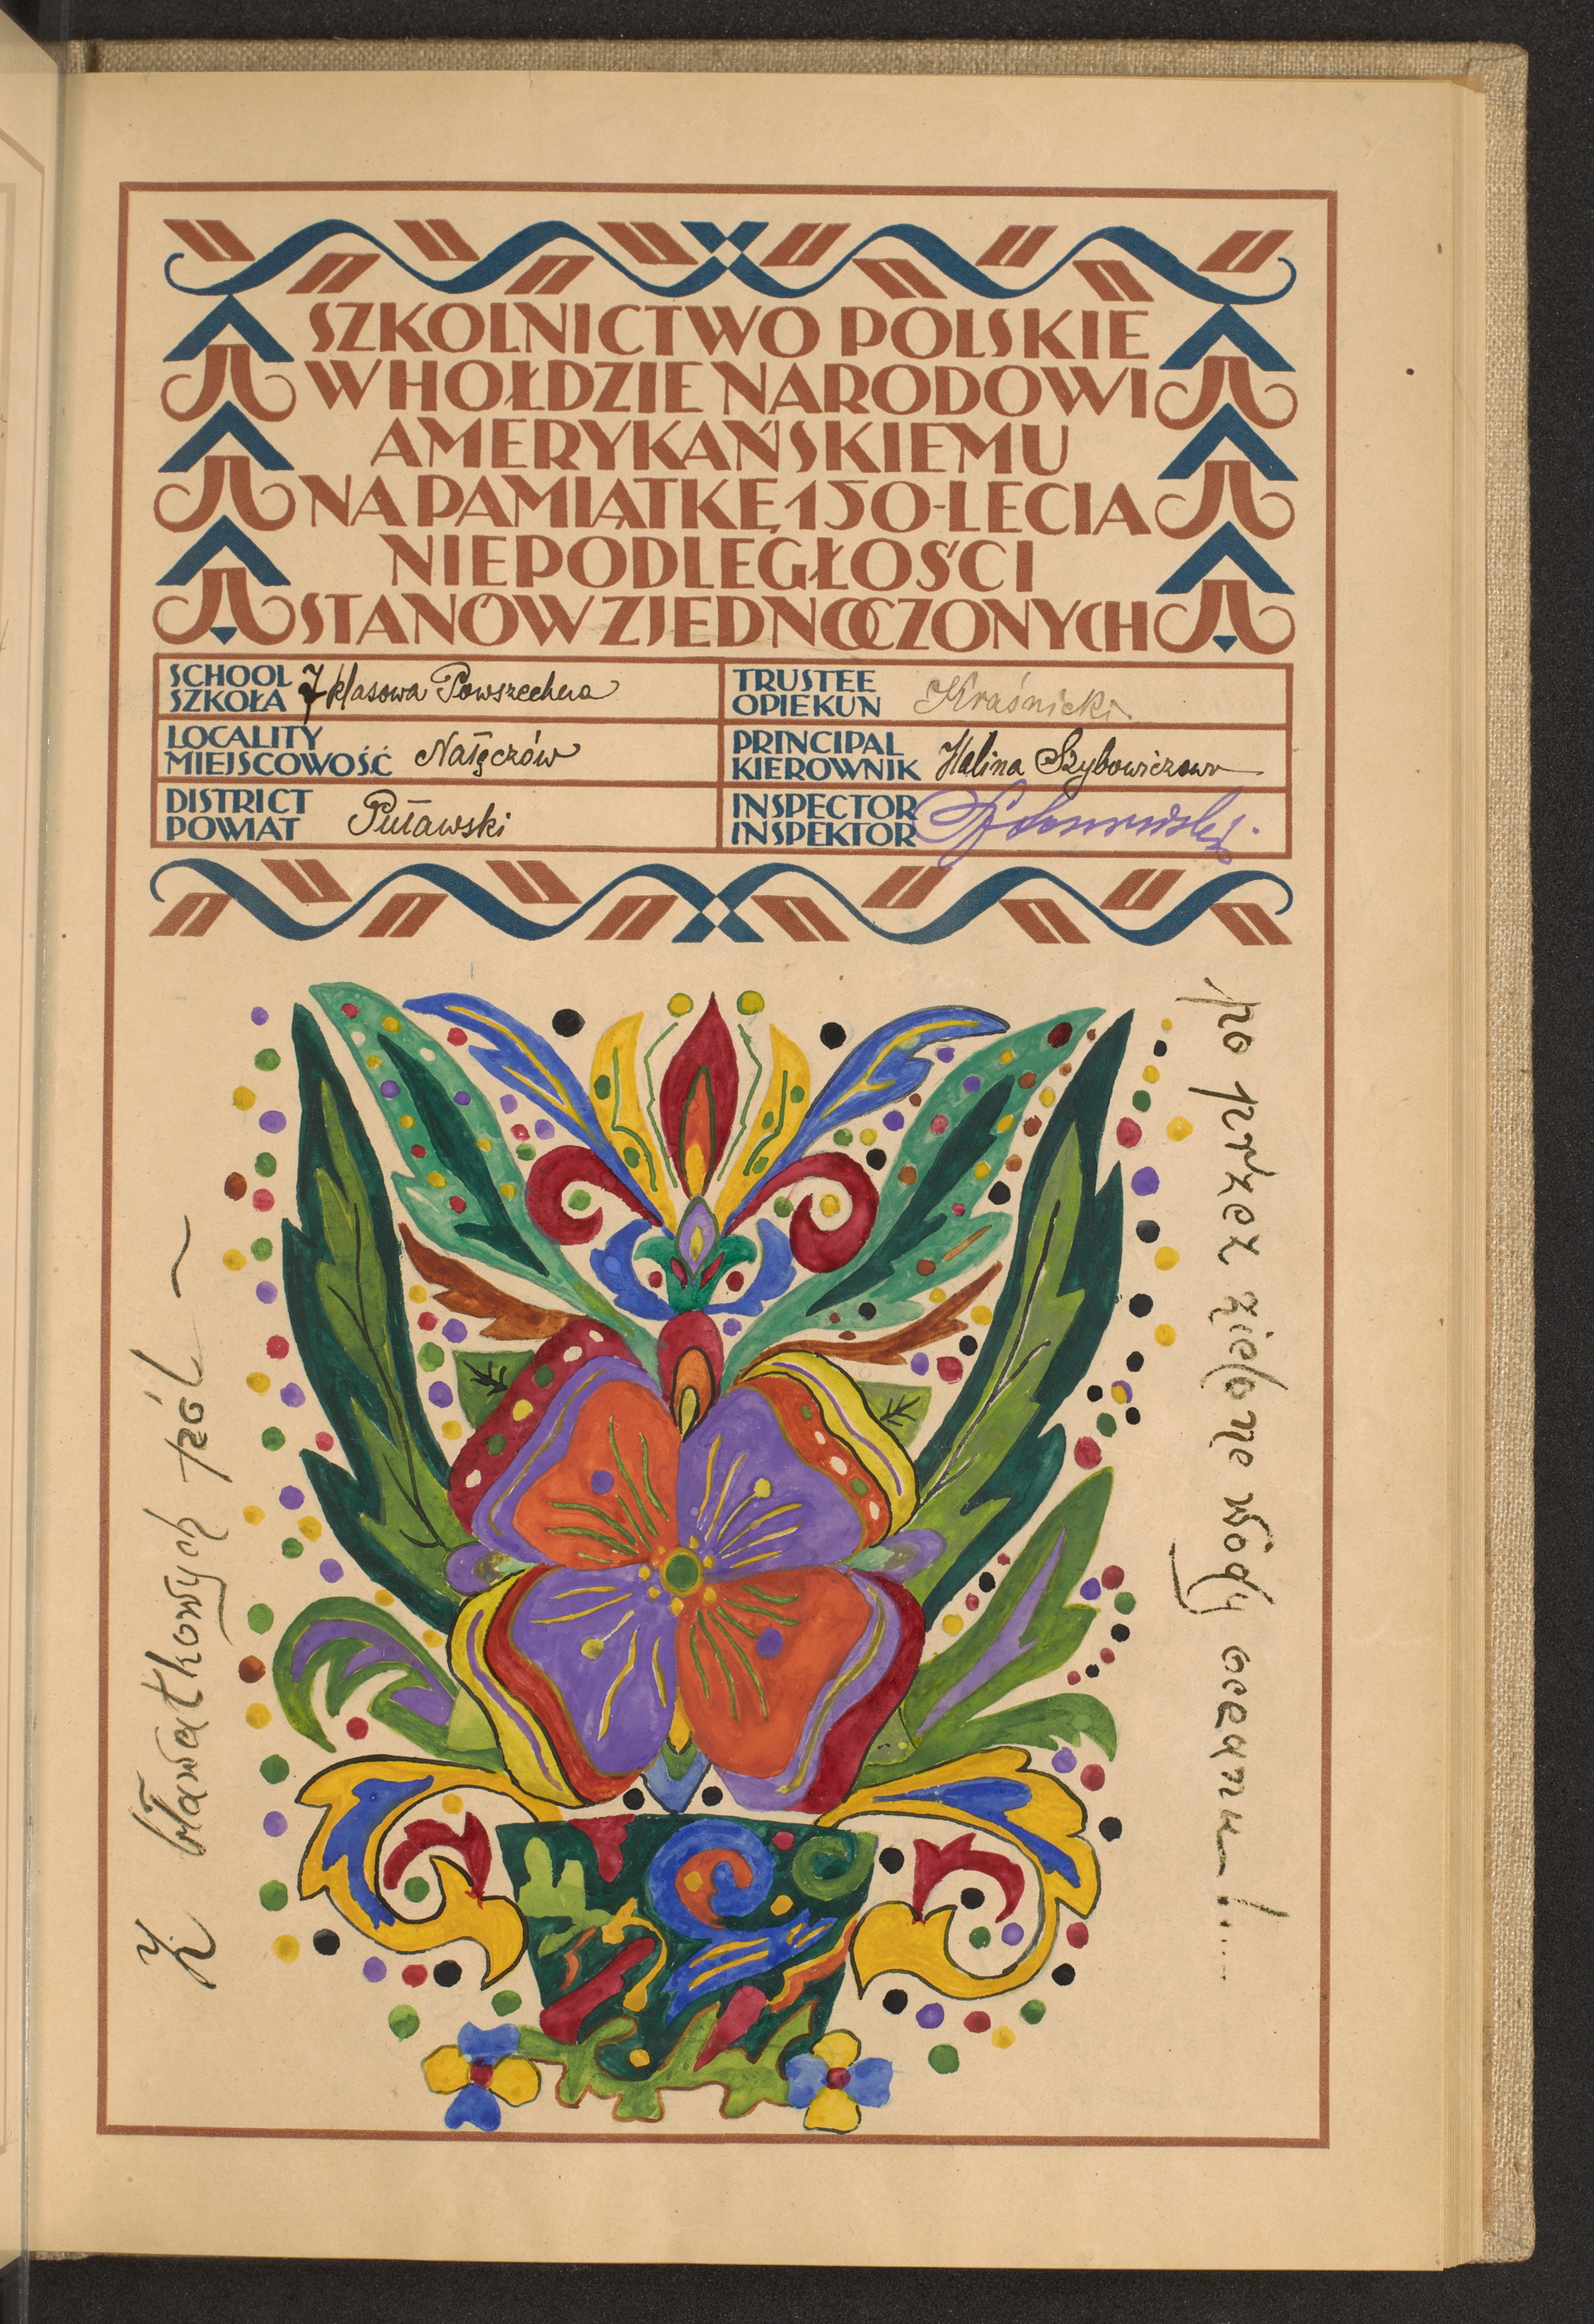 SZKOLNICTWO POLSKIE
W HOŁDZIE NARODOWI
AMERYKAŃSKIEMU
NA PAMIĄTKĘ 150-LECIA
NIEPODLEGŁOŚCI
STANÓW ZJEDNOCZONYCH
SCHOOL
SZKOŁA 7 klasowa Powszechna
TRUSTEE
OPIEKUN Kraśnicki
LOCALITY
MIEJSCOWOŚĆ Nałęczów
PRINCIPAL
KIEROWNIK Halina Szybowiczowa
DISTRICT
POWIAT Puławski
INSPECTOR
INSPEKTOR
Z bławatkowych pól —
po przez zielone wody oceanu!....